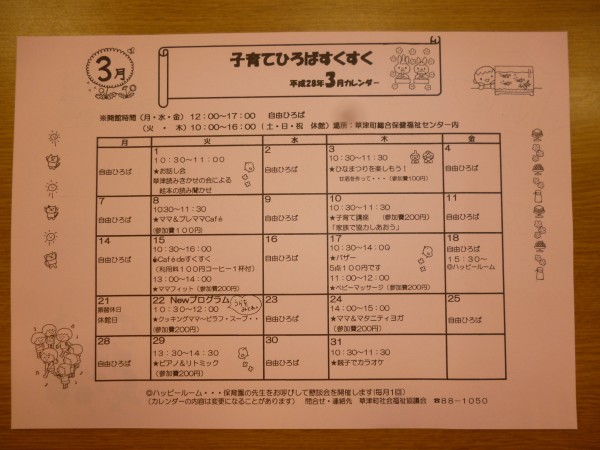 3月
子育てひろばすくすく
平成28年3月カレンダー
※開館時間（月・水・金）12：00～17：00　自由ひろば
（火・木）10：00～16：00（土・日・祝　休館）場所：草津町総合保健福祉センター内
月　火　水　木　金
1
10：30～11：00
★お話し会
草津読みきかせの会による
絵本の読み聞かせ
2
自由ひろば
3
10：30～11：30
★ひなまつりを楽しもう！
甘酒を作って・・・（参加費100円）
4
自由ひろば
7
自由ひろば
8
10：30～11：30
★ママ＆プレママCafé
（参加費100円）
9
自由ひろば
10
10：30～11：30
★子育て講座　（参加費200円）
「家族で協力しあおう」
11
自由ひろば
14
自由ひろば
15
10：30～16：00
Cafédeすくすく
（利用料100円コーヒー1杯付）
13：00～14：00
★ママフィット（参加費200円）
16
自由ひろば
17
10：30～14：00
★バザー
5点100円です
11：00～12：00
★ベビーマッサージ（参加費200円）
18
自由ひろば
15：30～
◎ハッピールーム
21
振替休日
休館日
22 Newプログラム
10：30～12：00
★クッキングママ～ピラフ・スープ・・
（参加費200円）
23
自由ひろば
24
14：00～15：00
★ママ＆マタニティヨガ
（参加費200円）
25
自由ひろば
28
自由ひろば
29
13：30～14：30
★ピアノ＆リトミック
（参加費200円）
30
自由ひろば
31
10：30～11：30
★親子でカラオケ
◎ハッピールーム・・・保育園の先生をお呼びして懇談会を開催します（毎月1回）
（カレンダーの内容は変更になることがあります）　問合せ・連絡先　草津町社会福祉協議会　☎88-1050